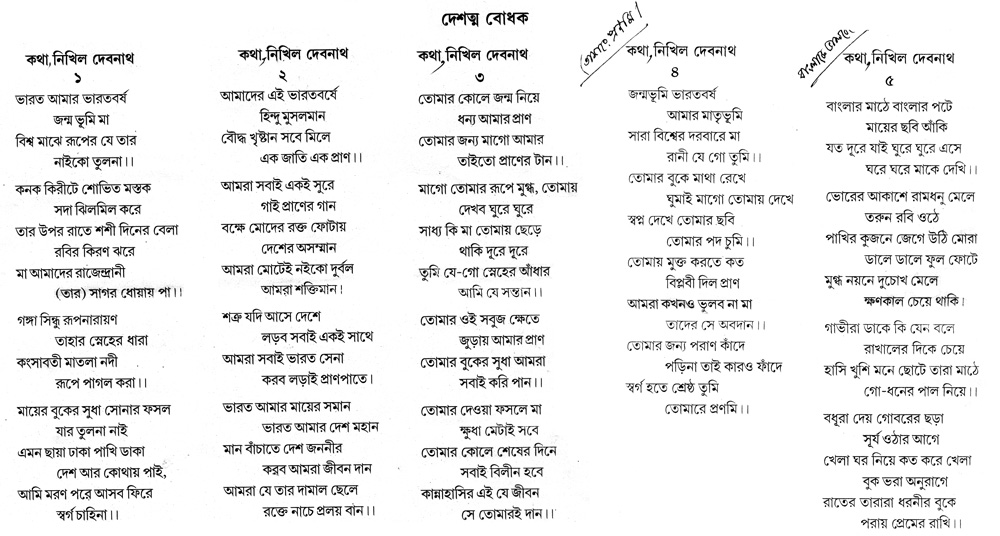 দেশত্ম বোধক
কথা, নিখিল দেবনাথ
১
ভারত আমার ভারতবর্ষ
জন্ম ভূমি মা
বিশ্ব মাঝে রূপের যে তার
নাইকো তুলনা।।
কনক কিরীটে শোভিত মস্তক
সদা ঝিলমিল করে
তার উপর রাতে শশী দিনের বেলা
রবির কিরণ ঝরে
মা আমাদের রাজেন্দ্রানী
(তার) সাগর ধোয়ায় পা।।
গঙ্গা সিন্ধু রূপনারায়ণ
তাহার স্নেহের ধারা
কংসাবতী মাতলা নদী
রূপে পাগল করা।।
মায়ের বুকের সুধা সোনার ফসল
যার তুলনা নাই
এমন ছায়া ঢাকা পাখি ডাকা
দেশ আর কোথায় পাই,
আমি মরণ পরে আসব ফিরে
স্বর্গ চাহিনা।।
কথা, নিখিল দেবনাথ
২
আমাদের এই ভারতবর্ষে
হিন্দু মুসলমান
বৌদ্ধ খৃষ্টান সবে মিলে
এক জাতি এক প্রাণ।।
আমরা সবাই একই সুরে
গাই প্রাণের গান
বক্ষে মোদের রক্ত ফোটায়
দেশের অসম্মান
আমরা মোটেই নইকো দুর্বল
আমরা শক্তিমান!
শত্রু যদি আসে দেশে
লড়ব সবাই একই সাথে
আমরা সবাই ভারত সেনা
করব লড়াই প্রাণপাতে।
ভারত আমার মায়ের সমান
ভারত আমার দেশ মহান
মান বাঁচাতে দেশ জননীর
করব আমরা জীবন দান
আমরা যে তার দামাল ছেলে
রক্তে নাচে প্রলয় বান।।
কথা, নিখিল দেবনাথ
৩
তোমার কোলে জন্ম নিয়ে
ধন্য আমার প্রাণ
তোমার জন্য মাগো আমার
তাইতো প্রাণের টান।।
মাগো তোমার রূপে মুগ্ধ, তোমায়
দেখব ঘুরে ঘুরে
সাধ্য কি মা তোমায় ছেড়ে
থাকি দূরে দূরে
তুমি যে-গো স্নেহের আঁধার
আমি যে সন্তান।।
তোমার ওই সবুজ ক্ষেতে
জুড়ায় আমার প্রাণ
তোমার বুকের সুধা আমরা
সবাই করি পান।।
তোমার দেওয়া ফসলে মা
ক্ষুধা মেটাই সবে
তোমার কোলে শেষের দিনে
সবাই বিলীন হবে
কান্নাহাসির এই যে জীবন
সে তোমারই দান।।
কথা, নিখিল দেবনাথ
৪
জন্মভূমি ভারতবর্ষ
আমার মাতৃভূমি
সারা বিশ্বের দরবারে মা
রানী যে গো তুমি।।
তোমার বুকে মাথা রেখে
ঘুমাই মাগো তোমায় দেখে
স্বপ্ন দেখে তোমার ছবি
তোমার পদ চুমি।।
তোমায় মুক্ত করতে কত
বিপ্লবী দিল প্রাণ
আমরা কখনও ভুলব না মা
তাদের সে অবদান।।
তোমার জন্য পরাণ কাঁদে
পড়িনা তাই কারও ফাঁদে
স্বর্গ হতে শ্রেষ্ঠ তুমি
তোমারে প্রণমি।।
কথা, নিখিল দেবনাথ
৫
বাংলার মাঠে বাংলার পটে
মায়ের ছবি আঁকি
যত দূরে যাই ঘুরে ঘুরে এসে
ঘরে ঘরে মাকে দেখি।।
ভোরের আকাশে রামধনু মেলে
তরুন রবি ওঠে
পাখির কুজনে জেগে উঠি মোরা
ডালে ডালে ফুল ফোটে
মুগ্ধ নয়নে দুচোখ মেলে
ক্ষণকাল চেয়ে থাকি।
গাভীরা ডাকে কি যেন বলে
রাখালের দিকে চেয়ে
হাসি খুশি মনে ছোটে তারা মাঠে
গো-ধনের পাল নিয়ে।।
বধূরা দেয় গোবরের ছড়া
সূর্য ওঠার আগে
খেলা ঘর নিয়ে কত করে খেলা
বুক ভরা অনুরাগে
রাতের তারারা ধরনীর বুকে
পরায় প্রেমের রাখি।।